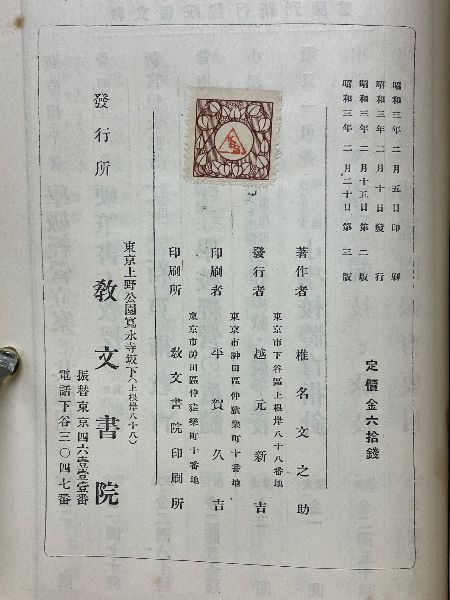 昭和三年二月五日印刷
昭和三年二月十日發行
昭和三年二月十五日第二版
昭和三年二月二十日第三版
定價金六拾錢
著作者 椎名文之助
東京市下谷區上根岸八十八番地
發行者 越元新吉
東京市神田區仲猿樂町十番地
印刷者 平賀久吉
東京市神田區仲猿樂町十番地
印刷所 敎文書院印刷所
東京上野公園寬永寺坂下(上根岸八十八)
發行所 敎文書院
振替東京四六壹壹壹番
電話下谷三〇四七番